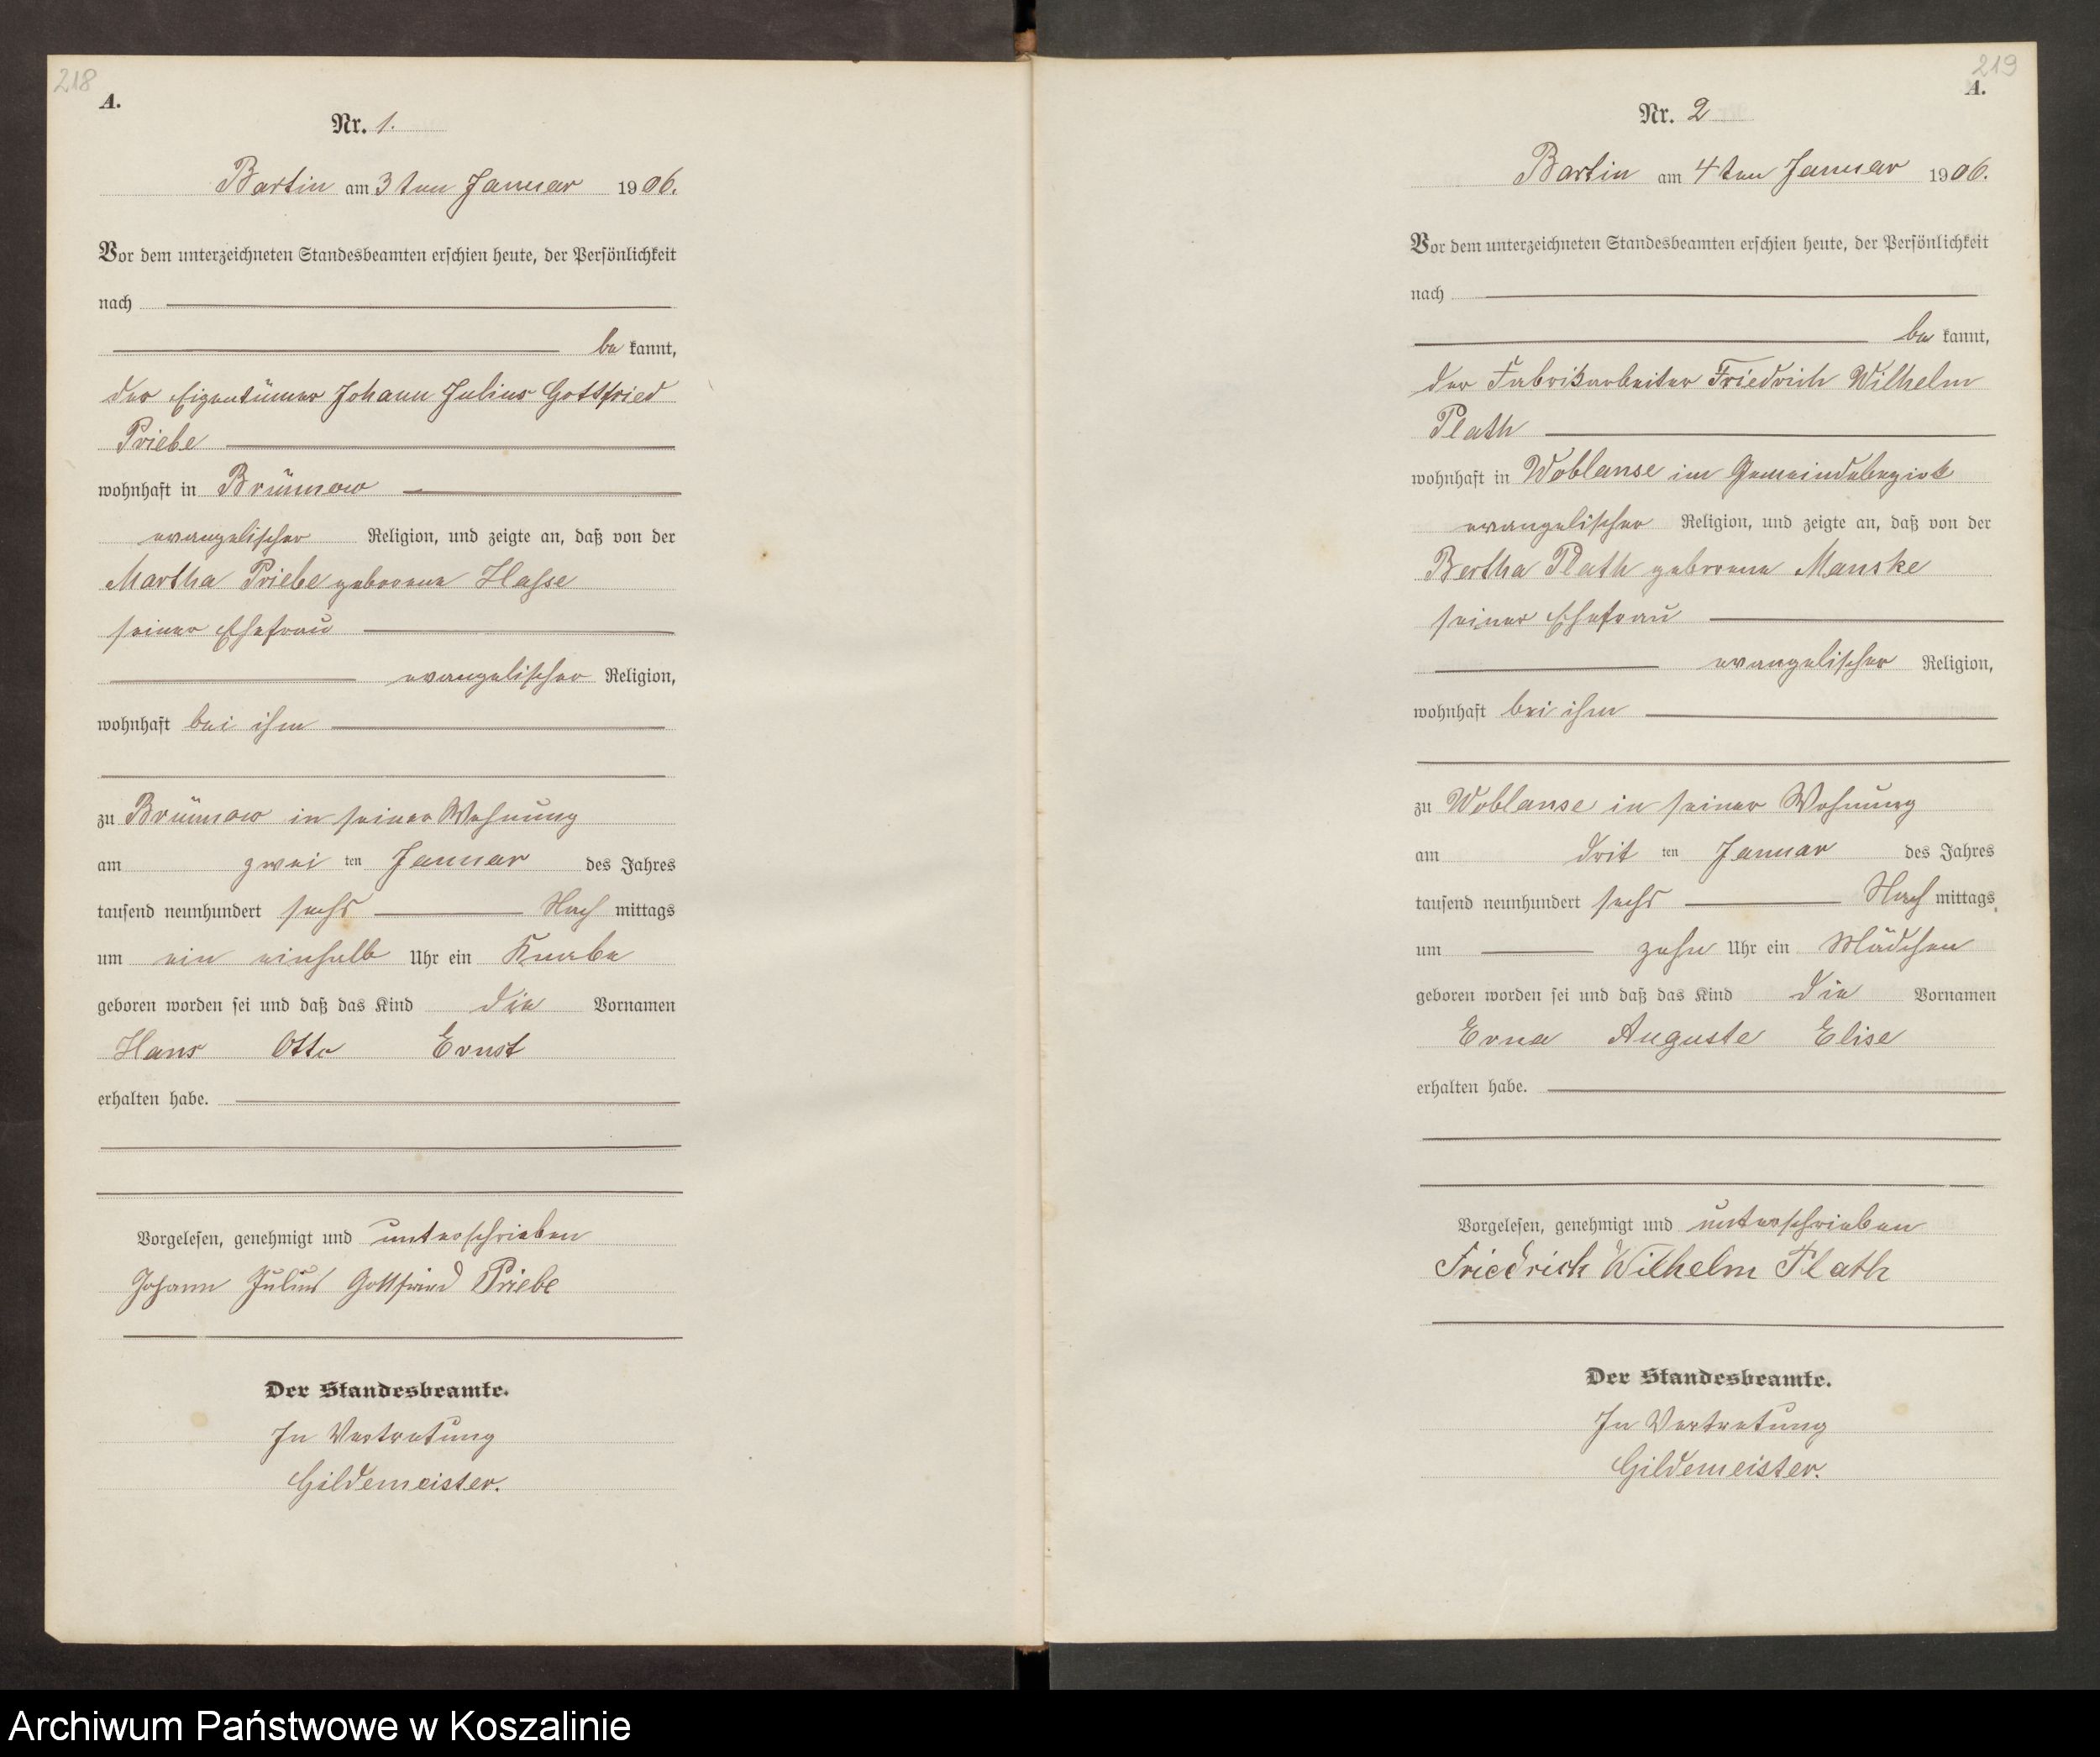 218
A.
Nr. 1.
Bartin am 3ten Januar 1906.
Vor dem unterzeichneten Standesbeamten erschien heute, der Persönlichkeit
nach
be kannt,
der Eigentümer Johann Julius Gottfried
Priebe
wohnhaft in Brünnow
evangelischer Religion, und zeigte an, daß von der
Martha Priebe geborene Hasse
seiner Ehefrau
evangelischer Religion,
wohnhaft bei ihm
zu Brünnow in seiner Wohnung
am zwei ten Januar des Jahres
tausend neunhundert sechs Nach mittags
um ein einhalb Uhr ein Knabe
geboren worden sei und daß das Kind die Vornamen
Hans Otto Ernst
erhalten habe.
Vorgelesen, genehmigt und unterschrieben
Johann Julius Gottfried Priebe
Der Standesbeamte.
In Vertretung
Gildemeister.
219
A.
Nr. 2
Bartin am 4ten Januar 1906.
Vor dem unterzeichneten Standesbeamten erschien heute, der Persönlichkeit
nach
be kannt,
der Fabrikarbeiter Friedrich Wilhelm
Plath
wohnhaft in Woblanse im Gemeindebezirk
evangelischer Religion, und zeigte an, daß von der
Bertha Plath geborene Manske
seiner Ehefrau
evangelischer Religion,
wohnhaft bei ihm
zu Woblanse in seiner Wohnung
am drit ten Januar des Jahres
tausend neunhundert sechs Nach mittags
um zehn Uhr ein Mädchen
geboren worden sei und daß das Kind die Vornamen
Erna Auguste Elise
erhalten habe.
Vorgelesen, genehmigt und unterschrieben
Friedrich Wilhelm Plath
Der Standesbeamte.
In Vertretung
Gildemeister.
Archiwum Państwowe w Koszalinie